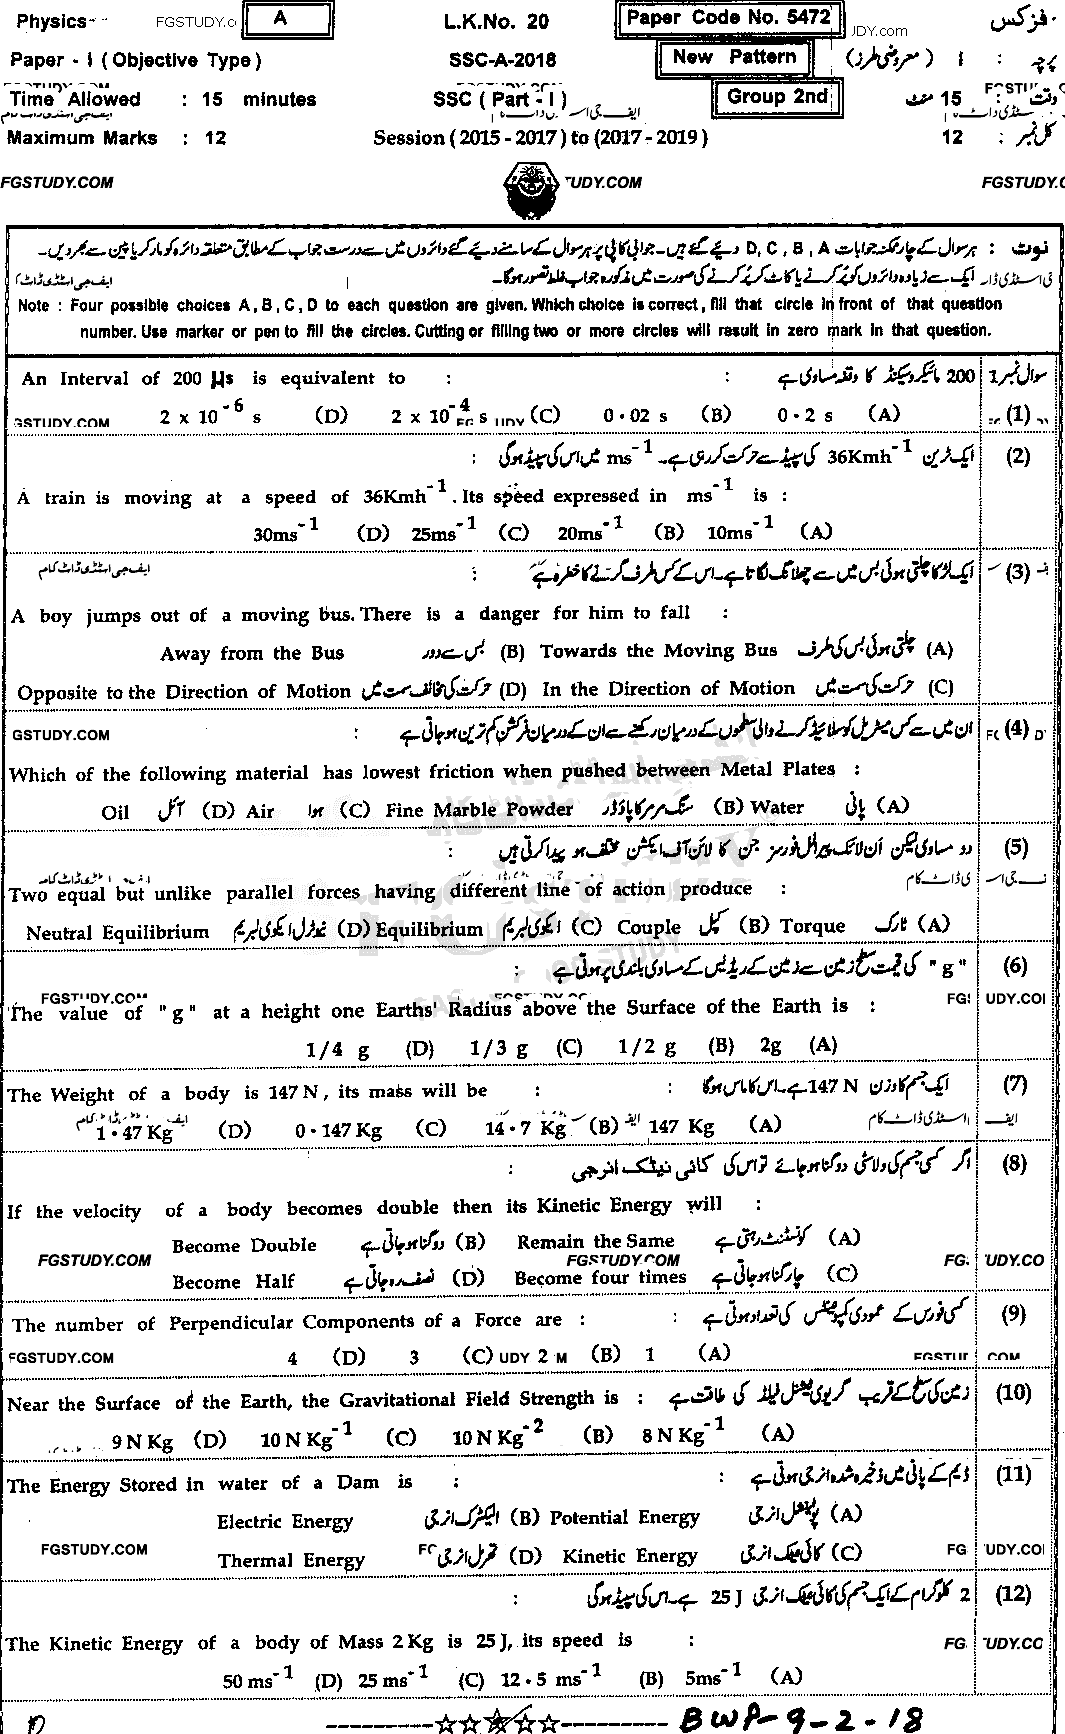 Physics FGSTUDY.c A L.K.No. 20 Paper Code No. 5472 JDY.com فزکس
Paper - I ( Objective Type ) SSC-A-2018 New Pattern پرچہ : I ( معروضی طرز )
Time Allowed : 15 minutes SSC ( Part - I ) Group 2nd وقت : 15 منٹ
Maximum Marks : 12 Session ( 2015 - 2017 ) to ( 2017 - 2019 ) کل نمبر : 12
FGSTUDY.COM TUDY.COM FGSTUDY.C
نوٹ : ہر سوال کے چار ممکنہ جوابات D, C, B, A دیئے گئے ہیں۔ جوابی کاپی پر ہر سوال کے سامنے دیئے گئے دائروں میں سے درست جواب کے مطابق متعلقہ دائرہ کو مارکر یا پین سے بھر دیں۔
ایک سے زیادہ دائروں کو پُر کرنے یا کاٹ کر پُر کرنے کی صورت میں مذکورہ جواب غلط تصور ہوگا۔
Note : Four possible choices A , B , C , D to each question are given. Which choice is correct , fill that circle in front of that question
number. Use marker or pen to fill the circles. Cutting or filling two or more circles will result in zero mark in that question.
An Interval of 200 μs is equivalent to : 200 مائیکرو سیکنڈ کا وقفہ مساوی ہے : سوال نمبر 1
GSTUDY.COM 2 x 10⁻⁶ s (D) 2 x 10⁻⁴ s (C) 0.02 s (B) 0.2 s (A) (1)
ایک ٹرین 36Kmh⁻¹ کی سپیڈ سے حرکت کر رہی ہے۔ ms⁻¹ میں اس کی سپیڈ ہوگی : (2)
A train is moving at a speed of 36Kmh⁻¹. Its speed expressed in ms⁻¹ is :
30ms⁻¹ (D) 25ms⁻¹ (C) 20ms⁻¹ (B) 10ms⁻¹ (A)
ایف جی اسٹڈی ڈاٹ کام ایک لڑکا چلتی ہوئی بس میں سے چھلانگ لگاتا ہے۔ اس کے کس طرف گرنے کا خطرہ ہے : (3)
A boy jumps out of a moving bus. There is a danger for him to fall :
Away from the Bus بس سے دور (B) Towards the Moving Bus چلتی ہوئی بس کی طرف (A)
Opposite to the Direction of Motion حرکت کی مخالف سمت میں (D) In the Direction of Motion حرکت کی سمت میں (C)
GSTUDY.COM ان میں سے کس میٹریل کو سلائیڈ کرنے والی سطحوں کے درمیان رکھنے سے ان کے درمیان فرکشن کم ترین ہو جاتی ہے : (4)
Which of the following material has lowest friction when pushed between Metal Plates :
Oil آئل (D) Air ہوا (C) Fine Marble Powder سنگ مرمر کا پاؤڈر (B) Water پانی (A)
دو مساوی لیکن ان لائک پیرالل فورسز جن کا لائن آف ایکشن مختلف ہو پیدا کرتی ہیں : (5)
Two equal but unlike parallel forces having different line of action produce :
Neutral Equilibrium نیوٹرل ایکوی لبریم (D) Equilibrium ایکوی لبریم (C) Couple کپل (B) Torque ٹارک (A)
"g" کی قیمت سطح زمین سے زمین کے ریڈیس کے مساوی بلندی پر ہوتی ہے : (6)
FGSTUDY.COM FGS UDY.COI
The value of "g" at a height one Earths' Radius above the Surface of the Earth is :
1/4 g (D) 1/3 g (C) 1/2 g (B) 2g (A)
The Weight of a body is 147 N , its mass will be : ایک جسم کا وزن 147 N ہے۔ اس کا ماس ہوگا : (7)
1.47 Kg (D) 0.147 Kg (C) 14.7 Kg (B) 147 Kg (A)
اگر کسی جسم کی ولاسٹی دوگنا ہو جائے تو اس کی کائی نیٹک انرجی : (8)
If the velocity of a body becomes double then its Kinetic Energy will :
Become Double دوگنا ہو جاتی ہے (B) Remain the Same کونسٹنٹ رہتی ہے (A)
FGSTUDY.COM FGSTUDY.COM FG UDY.CO
Become Half نصف رہ جاتی ہے (D) Become four times چار گنا ہو جاتی ہے (C)
The number of Perpendicular Components of a Force are : کسی فورس کے عمودی کمپونینٹس کی تعداد ہوتی ہے : (9)
FGSTUDY.COM 4 (D) 3 (C) 2 (B) 1 (A)
Near the Surface of the Earth, the Gravitational Field Strength is : زمین کی سطح کے قریب گریوی ٹیشنل فیلڈ کی طاقت ہے (10)
9 N Kg (D) 10 N Kg⁻¹ (C) 10 N Kg⁻² (B) 8 N Kg⁻¹ (A)
The Energy Stored in water of a Dam is : ڈیم کے پانی میں ذخیرہ شدہ انرجی ہوتی ہے : (11)
Electric Energy الیکٹرک انرجی (B) Potential Energy پوٹینشل انرجی (A)
FGSTUDY.COM Thermal Energy تھرمل انرجی (D) Kinetic Energy کائی نیٹک انرجی (C) FG UDY.COI
2 کلوگرام کے ایک جسم کی کائی نیٹک انرجی 25 J ہے۔ اس کی سپیڈ ہوگی : (12)
The Kinetic Energy of a body of Mass 2 Kg is 25 J, its speed is : FG TUDY.CC
50 ms⁻¹ (D) 25 ms⁻¹ (C) 12.5 ms⁻¹ (B) 5ms⁻¹ (A)
BWP-9-2-18